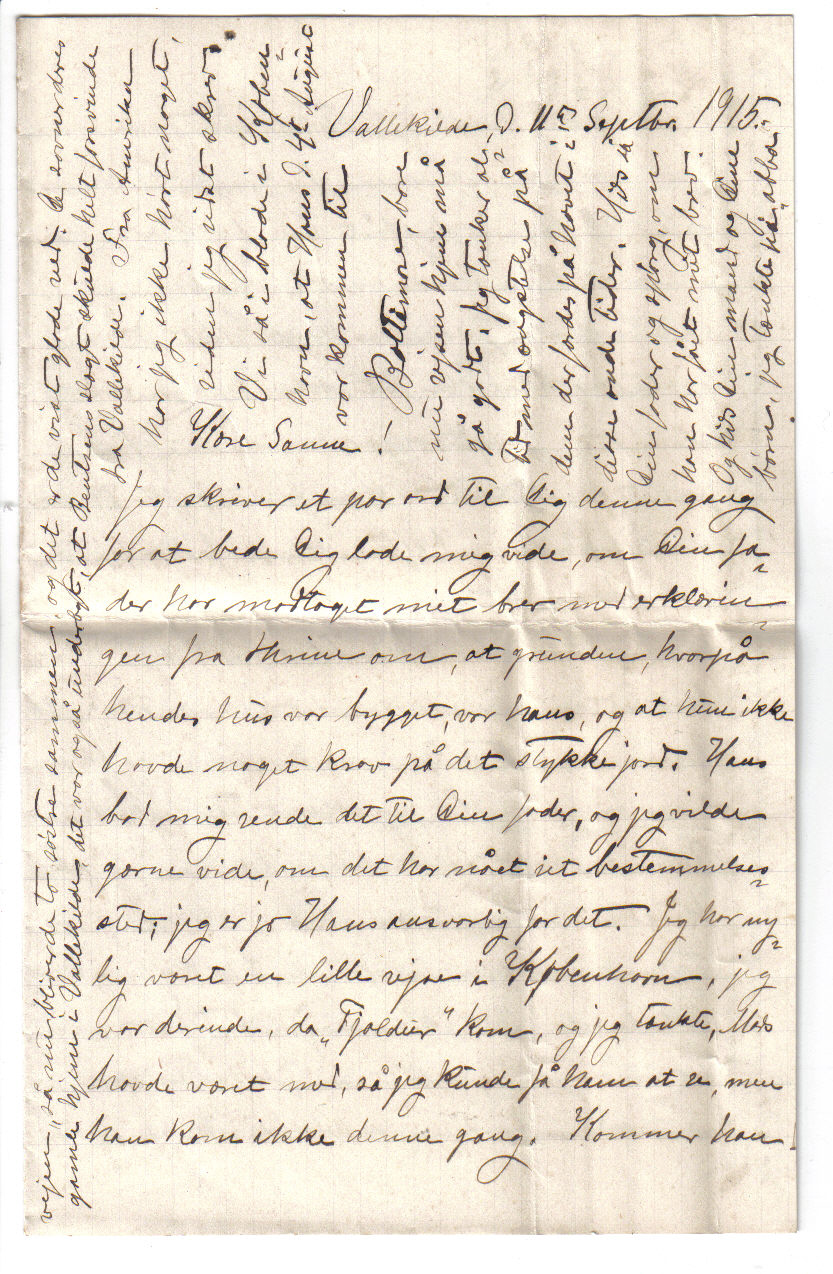 Vallekilde, d. 11te Septbr. 1915.
Kære Sanne!
Jeg skriver et par ord til Dig denne gang
for at bede Dig lade mig vide, om Din fa-
der har modtaget mit brev med erklærin-
gen fra Thrine om, at grunden, hvorpå
hendes hus var bygget, var hans, og at hun ikke
havde noget krav på det stykke jord. Hans
bad mig sende det til Din fader, og jeg vilde
gærne vide, om det har nået sit bestemmelses-
sted; jeg er jo Hans ansvarlig for det. Jeg har ny-
lig været en lille rejse i København, jeg
var derinde, da "Tjaldur" kom, og jeg tænkte, Mads
havde været med, så jeg kunde få ham at se, men
han kom ikke denne gang. Kommer han
vejen, så nu bliver de to søstre sammen, og det er de vist glade ved. De sover deres
gamle hjem i Vallekilde, det var også underligt, at Bentsens slægt skulde helt forsvinde
fra Vallekilde. Fra Amerika
har jeg ikke hørt noget,
siden jeg sidst skrev.
Vi så i blade i Køben-
havn, at Hans d. 4de August
var kommen til
Baltimore, bare
nu rejsen hjem må
gå godt, jeg tænker al-
tid med ængstelse på
dem der færdes på havet i
disse onde tider. Hils så
Din fader og spørg, om
han har fået mit brev.
Og hils Din mand og Dine
børn, jeg tænkte på "abba"